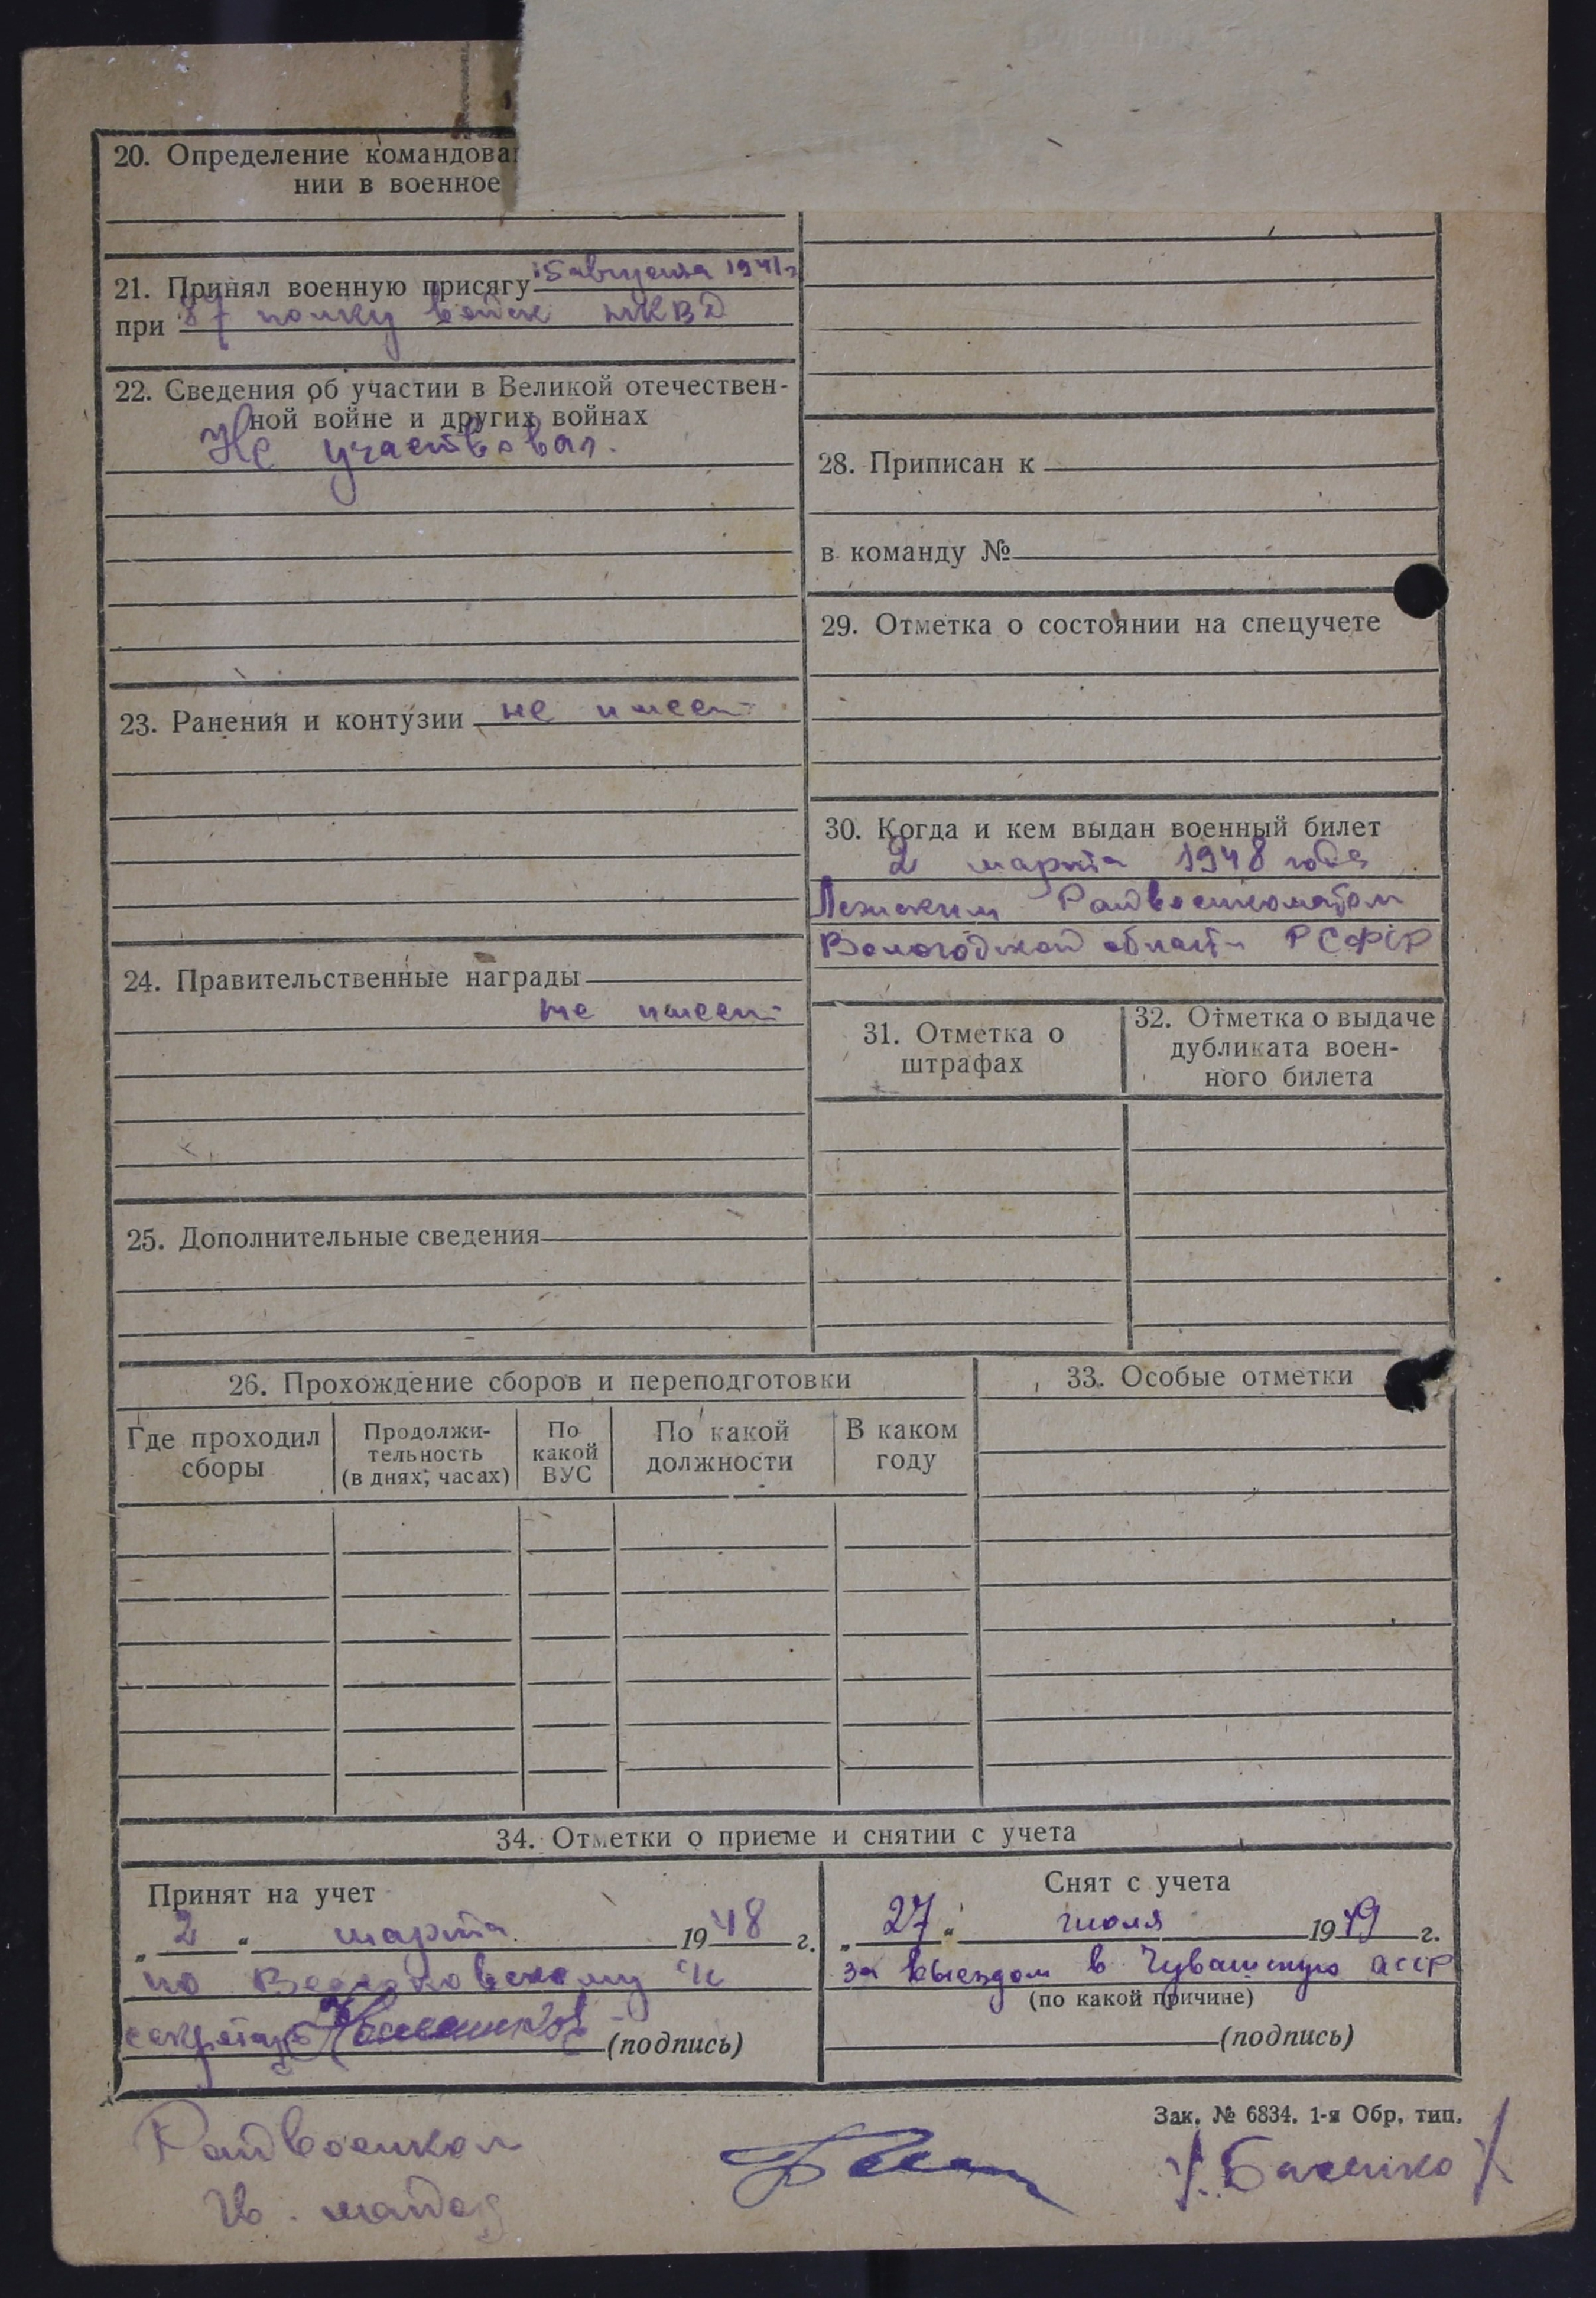 20. Определение командова
нии в военное
21. Принял военную присягу 15 августа 1941 г
при 87 полку войск НКВД
22. Сведения об участии в Великой отечествен-
ной войне и других войнах
Не участвовал.
23. Ранения и контузии не имеет
24. Правительственные награды
не имеет
25. Дополнительные сведения
28. Приписан к
в команду №
29. Отметка о состоянии на спецучете
30. Когда и кем выдан военный билет
2 марта 1948 года
Лежским Райвоенкоматом
Вологодской области РСФСР
31. Отметка о
штрафах
32. Отметка о выдаче
дубликата воен-
ного билета
26. Прохождение сборов и переподготовки
Где проходил
сборы
Продолжи-
тельность
(в днях, часах)
По
какой
ВУС
По какой
должности
В каком
году
33. Особые отметки
34. Отметки о приеме и снятии с учета
Принят на учет
„ 2 “ марта 1948 г.
по
секретарь (подпись)
Снят с учета
„ 27 “ июля 1949 г.
за выездом в Чувашскую АССР
(по какой причине)
(подпись)
Зак. № 6834. 1-я Обр. тип.
Райвоенком
Гв. майор /Басенко/